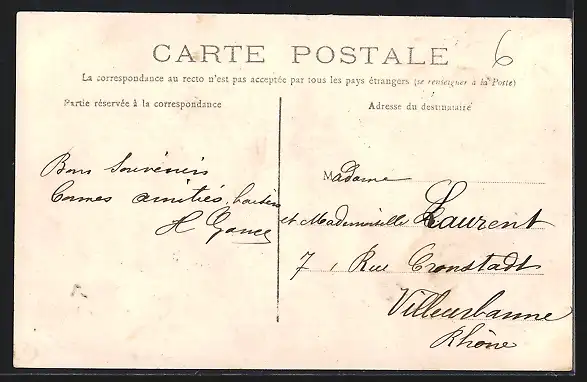 6
CARTE POSTALE
La correspondance au recto n'est pas acceptée par tous les pays étrangers (se renseigner à la Poste)
Partie réservée à la correspondance
Adresse du destinataire
Bons Souvenirs
Bonnes amitiés,
H
Madame
et Mademoiselle Laurent
7, Rue Cronstadt
Villeurbanne
Rhône